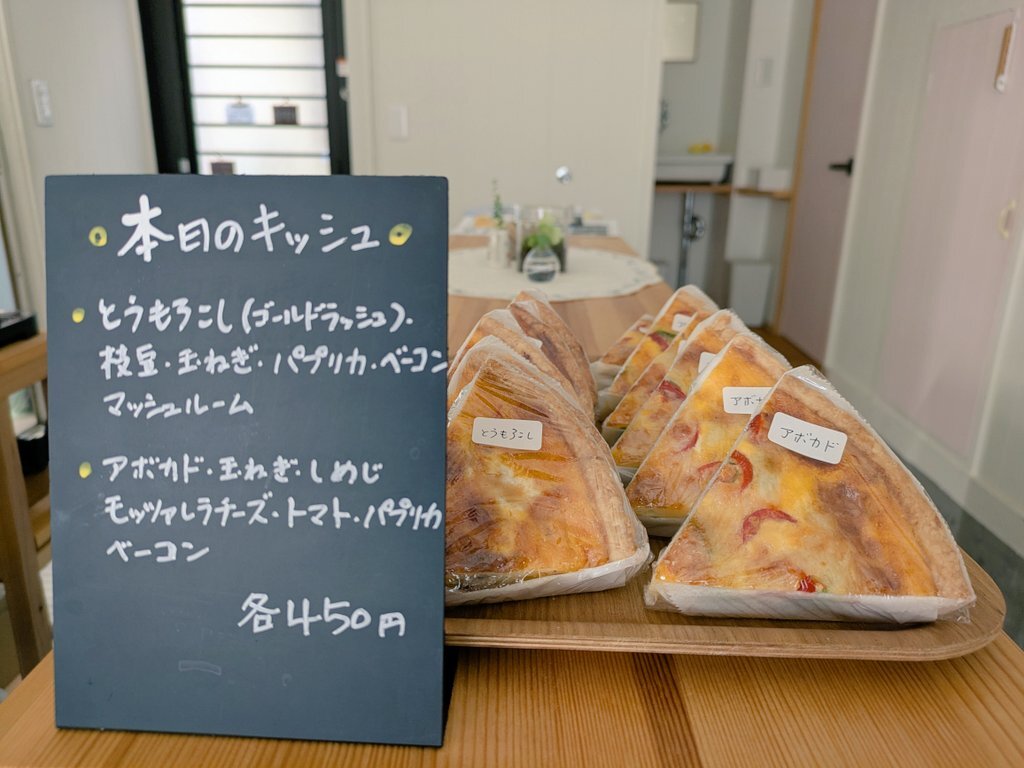 本日のキッシュ
とうもろこし(ゴールドラッシュ)・
枝豆・玉ねぎ・パプリカ・ベーコン
マッシュルーム
アボカド・玉ねぎ・しめじ
モッツァレラチーズ・トマト・パプリカ
ベーコン
各450円
とうもろこし
アボカ
アボカド